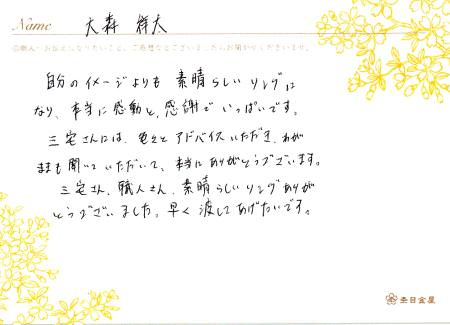 Name 大森 祥大
◎職人へお伝えしたいこと、ご感想などございましたらお聞かせくださいませ。
自分のイメージよりも 素晴らしいリングに
なり、本当に感動と、感謝でいっぱいです。
三宅さんには、色々とアドバイスいただき、わが
ままも聞いていただいて、本当にありがとうございます。
三宅さん、職人さん、素晴らしいリングありが
とうございました。早く渡してあげたいです。
杢目金屋